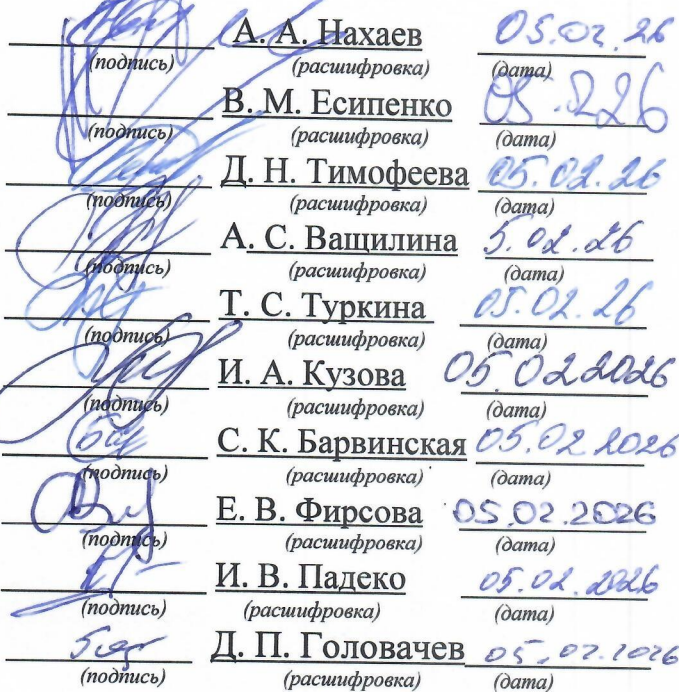 А. А. Нахаев 05.02.26
(подпись) (расшифровка) (дата)
В. М. Есипенко 05.02.26
(подпись) (расшифровка) (дата)
Д. Н. Тимофеева 05.02.26
(подпись) (расшифровка) (дата)
А. С. Ващилина 5.02.26
(подпись) (расшифровка) (дата)
Т. С. Туркина 05.02.26
(подпись) (расшифровка) (дата)
И. А. Кузова 05.02 2026
(подпись) (расшифровка) (дата)
С. К. Барвинская 05.02 2026
(подпись) (расшифровка) (дата)
Е. В. Фирсова 05.02.2026
(подпись) (расшифровка) (дата)
И. В. Падеко 05.02.2026
(подпись) (расшифровка) (дата)
Д. П. Головачев 05.02.2026
(подпись) (расшифровка) (дата)